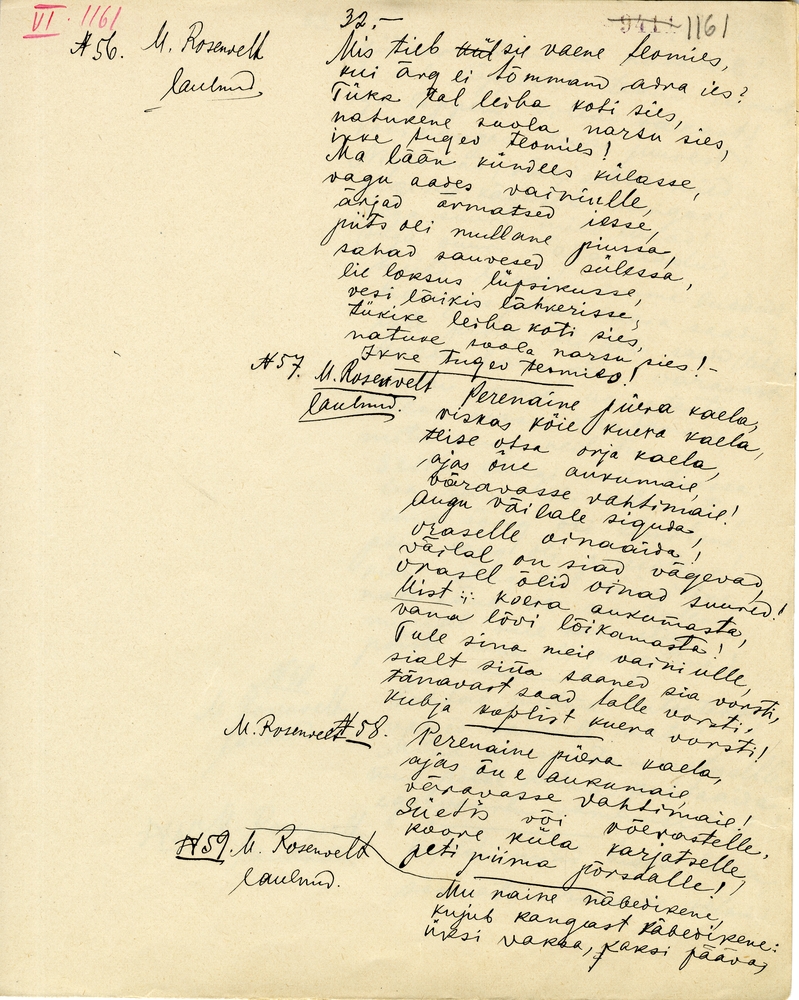 VI 1161
32.–
1161
№56. M. Rosenvelt
laulnud.
Mis tieb sie vaene teomies,
kui ärg ei tõmmand adra ies?
Tükk tal leiba koti sies,
natukene soola narsu sies,
ikke tugev teomies!
Ma lään kündees külasse,
vagu aades vainiulle,
ärjad ärmatsed iesse,
piits oli mullane piussa,
sahad sauvesed sülessa,
lie loksus lüpsikusse,
vesi läikis lähkerisse,
tükike leiba koti sies,
natuke soola narsu sies!–
Ikke tugev teomies!
№57.
M. Rosenvelt
laulnud.
Perenaine püera kaela,
viskas köie kuera kaela,
teise otsa orja kaela,
ajas õue aukumaie,
väravasse vahtimaie!
Augu väilale siguda,
vraselle oinaaida!
väilal on siad vägevad,
vrasel õlid oinad suured!
Mist koera aukumasta,
vana lõvi lõikamasta!
Tule sina meie vainiulle,
sialt siita saaned sia vorsti,
tänavast saad talle vorsti,
kubja koplist kuera vorsti!
M. Rosenvelt №58.
Perenaine püera kaela,
ajas õue aukumaie,
väravasse vahtimaie!
Süetis või võerastelle,
koore küla karjatselle,
peti piima põrsaalle!
№59. M. Rosenvelt
laulnud.
Mu naine näbedikene,
kujub kangast käbedikene:
üksi vaksa, kaksi pääva,